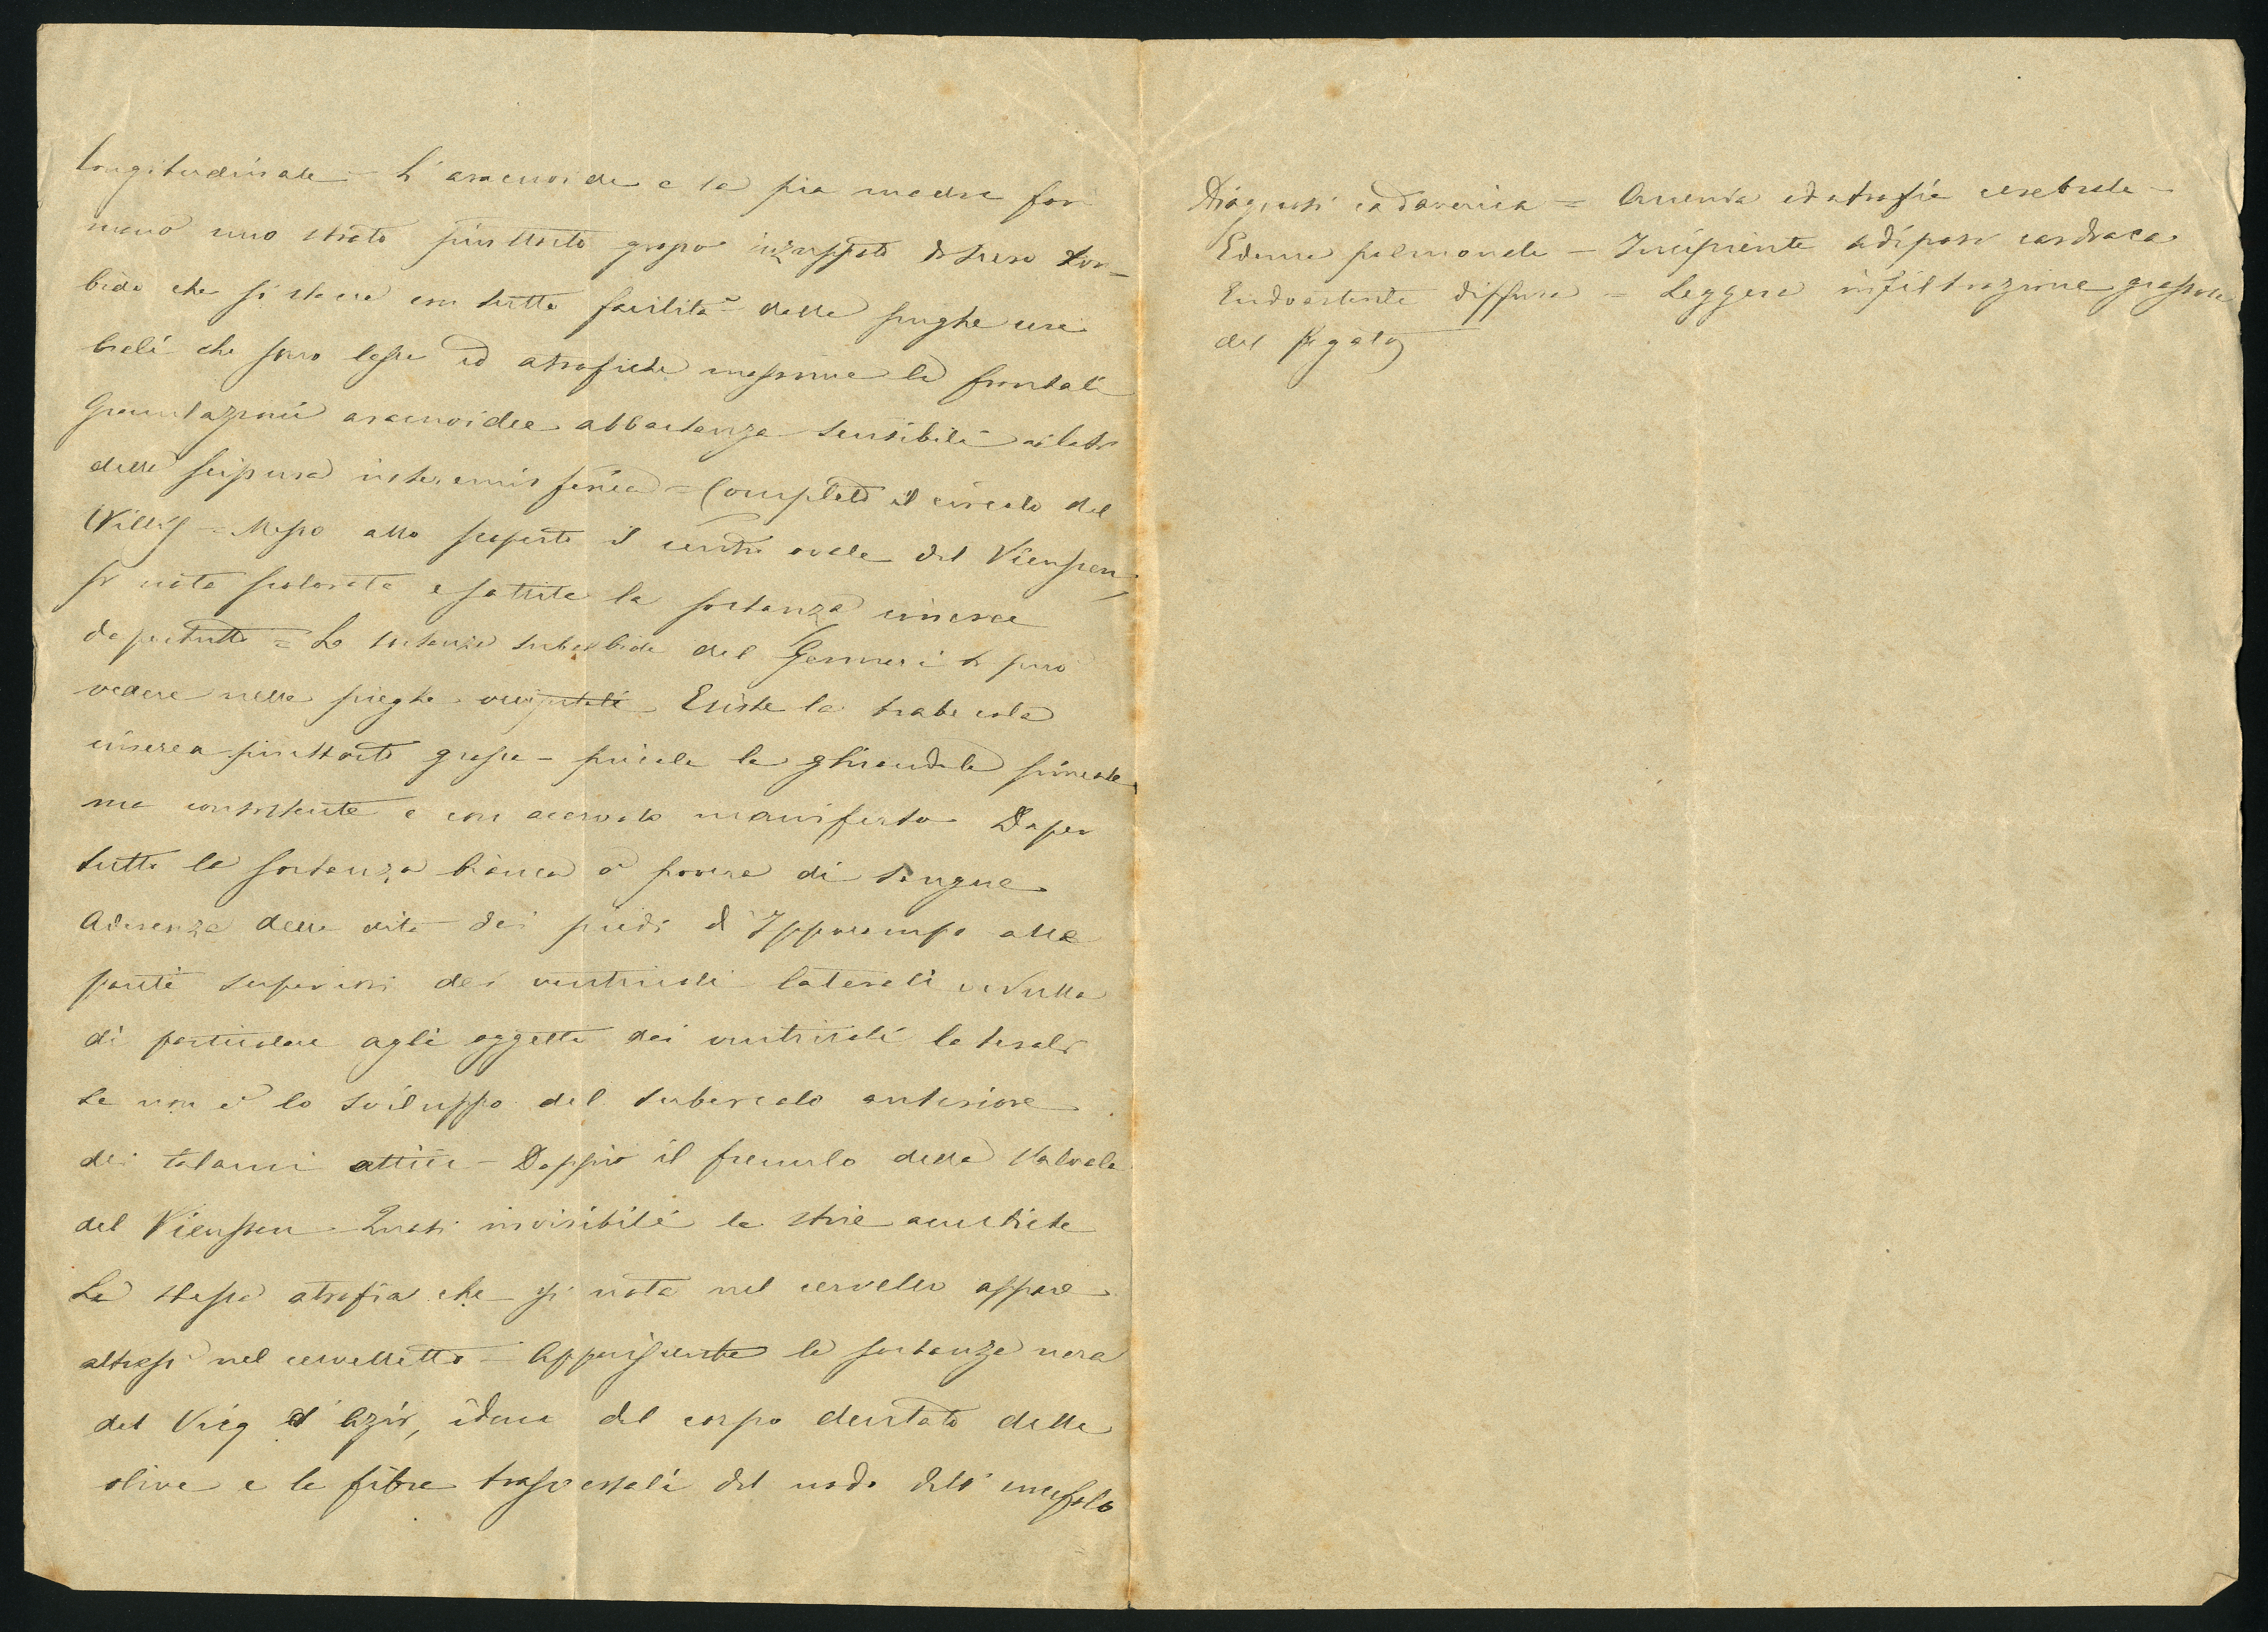 longitudinale - L'aracnoide e la pia madre for
mano uno strato piuttosto grosso inzuppato di siero tor=
bido che si stacca con tutta facilità dalle pieghe cere
brali che sono lasse ed atrofiche massime le frontali
Granulazioni aracnoidee abbastanza sensibili ai lati
della scissura interemisferica = Completo il circolo del
Willis - Messo allo scoperto il centro ovale del Vieussen,
si nota scolorata e la sostanza cinerea
dapertutto = La sostanza subalbida del Gennari si può
vedere nelle pieghe occipitali Esiste la trabecola
cinerea piuttosto grossa - piccola la ghiandola pineale
ma consistente e con acervolo manifesto Daper
tutto la sostanza bianca è povera di sangue
Aderenza delle dita dei piedi d'Ippocampo alle
pareti superiori dei ventricoli laterali = Nulla
di particolare agli oggetti dei ventricoli laterali
se non è lo sviluppo del tubercolo anteriore
dei talami ottici - Doppio il frenulo della Valvola
del Vieussen - Quasi invisibili le strie acustiche
La stessa atrofia che si nota nel cervello appare
altresì nel cervelletto - Appariscente la sostanza nera
del Vicq d'Azir, idem del corpo dentato delle
olive e le fibre trasversali del nodo dell'encefalo
Diagnosi cadaverica = Anemia ed atrofia cerebrale -
Edema polmonale - Incipiente adiposi cardiaca
Endoarterite diffusa = Leggera infiltrazione grassosa
del fegato